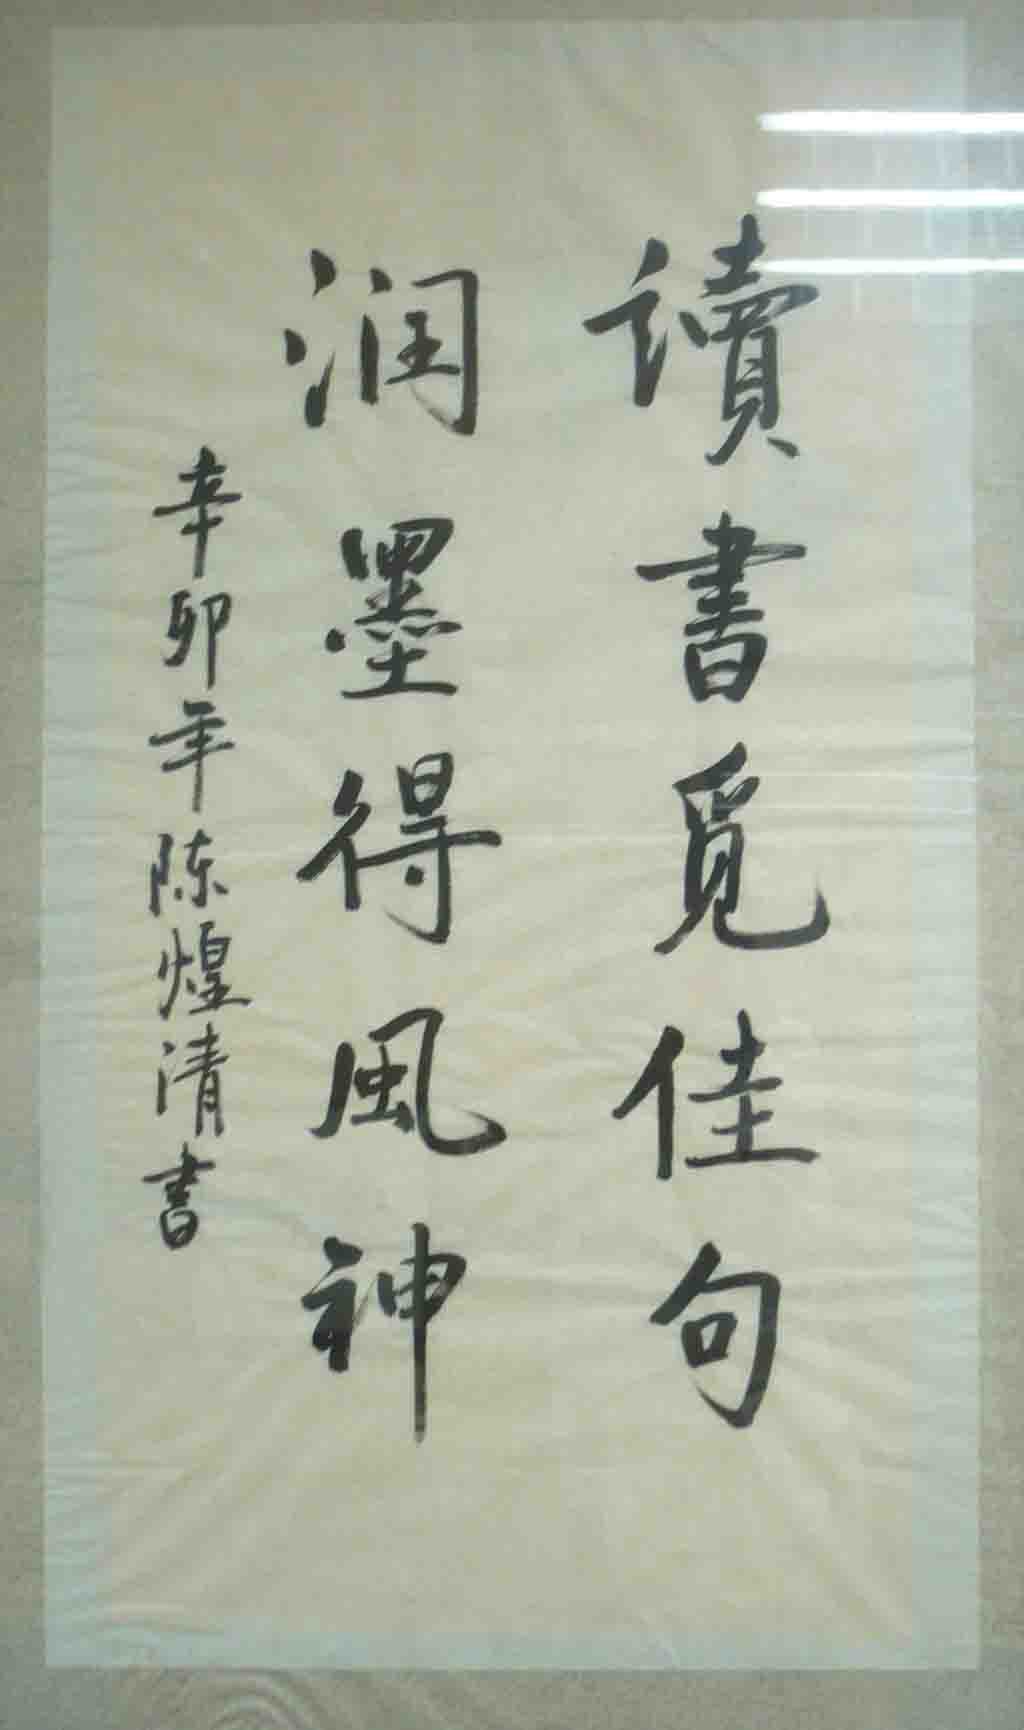 讀書覓佳句
润墨得風神
辛卯年陈煌清書